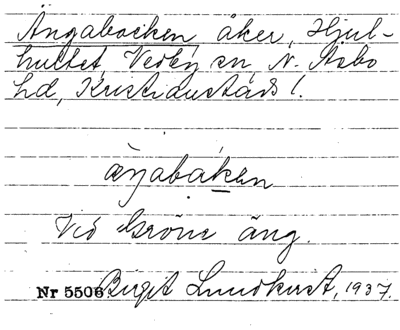 Ängabacken åker, Hjul-
hultet, Vedby sn N. Åsbo
hd, Kristianstads l.
äŋabáken
Vid Gröne äng.
Nr 5506. Birgit Lundkvist, 1937.